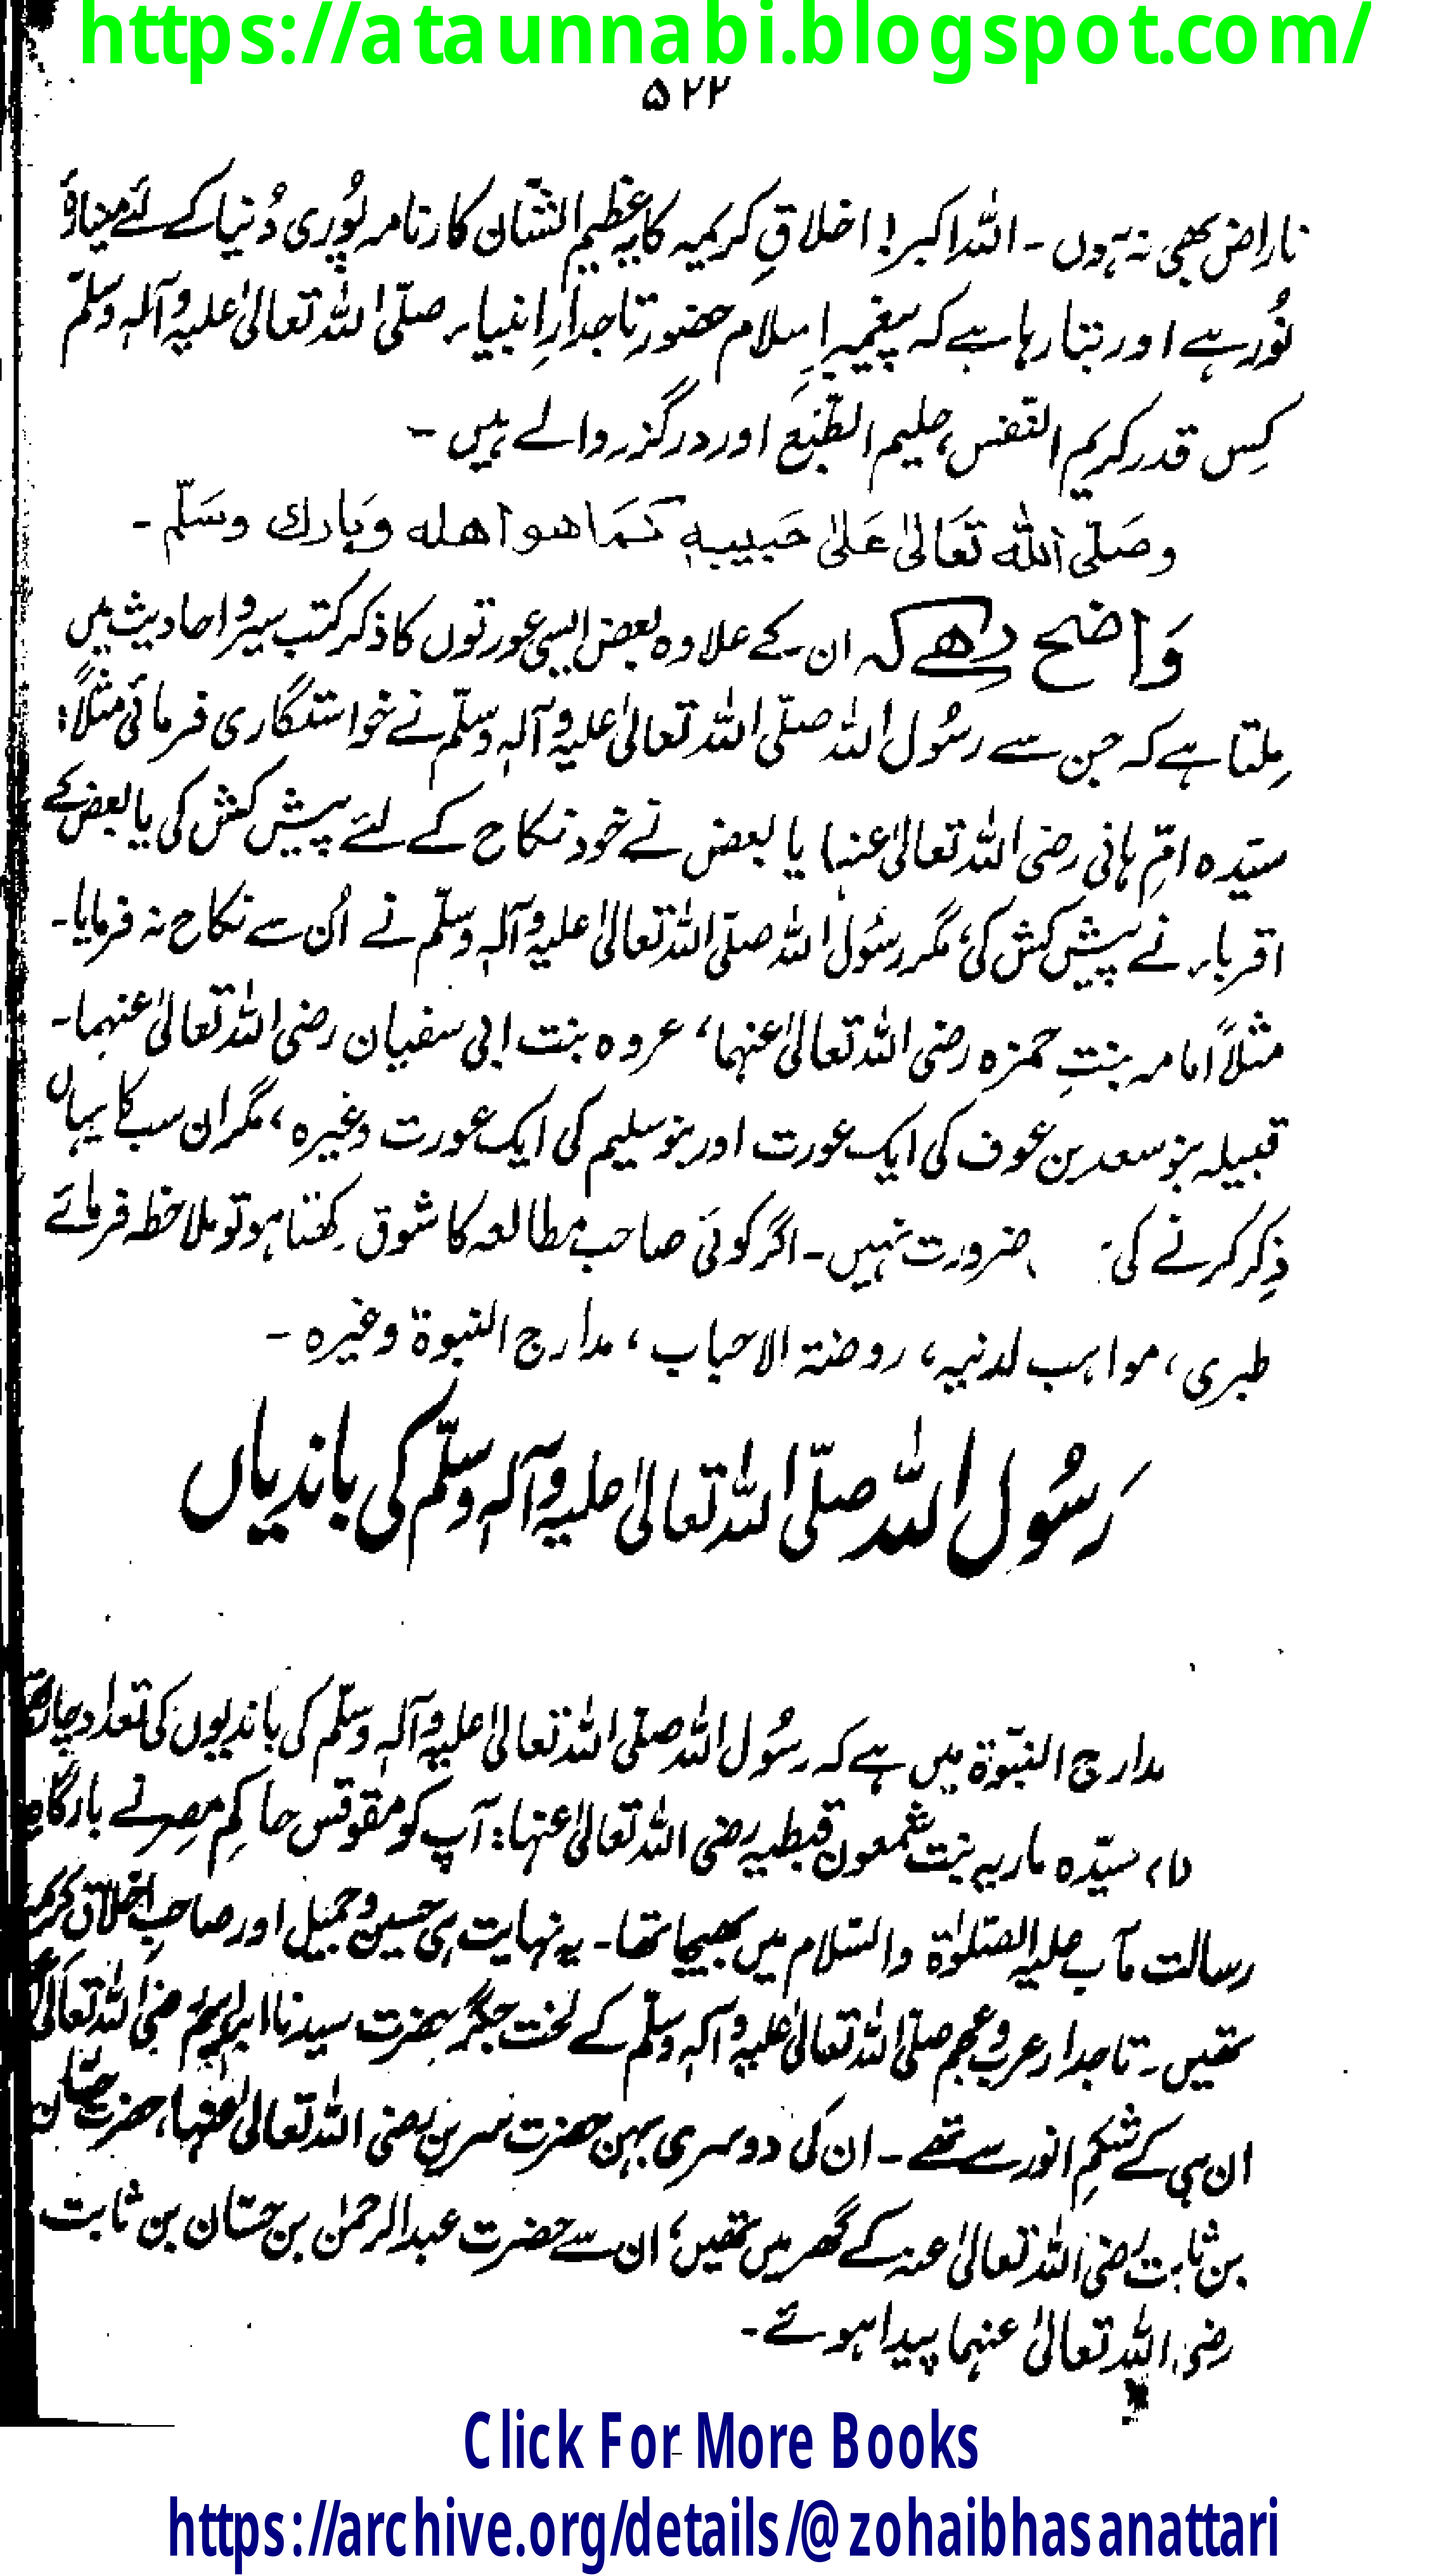 https://ataunnabi.blogspot.com/
۵۲۲
ناراض بھی نہ ہوں ۔ اللہ اکبر! اخلاقِ کریمیہ کا یہ عظیم الشّان کارنامہ پُوری دُنیا کے لئے مینارۂ
نُور ہے اور بتا رہا ہے کہ پیغمبرِ اسلام حضور تاجدارِ انبیاء صلّی اللہ تعالیٰ علیہ وآلہٖ وسلّم
کِس قدر کریم النّفس، حلیم الطّبع اور درگزر والے ہیں ۔
وصَلّی اللّٰہ تعَالیٰ عَلیٰ حَبیبہٖ کمَا ھو اَھلہ وَبَارك وسَلّم ۔
وَاضح رھے کہ ان کے علاوہ بعض ایسی عورتوں کا ذکر کتب سیر و احادیث میں
مِلتا ہے کہ جن سے رسُول اللہ صلّی اللہ تعالیٰ علیہ وآلہٖ وسلّم نے خواستگاری فرمائی مثلاً:
سیّدہ امِّ ہانی رضی اللہ تعالیٰ عنہا یا بعض نے خود نکاح کے لئے پیش کش کی یا بعض کے
اقرباء نے پیش کش کی، مگر رسُول اللہ صلّی اللہ تعالیٰ علیہ وآلہٖ وسلّم نے اُن سے نکاح نہ فرمایا۔
مثلاً امامہ بنتِ حمزہ رضی اللہ تعالیٰ عنہما، عروہ بنت ابی سفیان رضی اللہ تعالیٰ عنہما۔
قبیلہ بنو سعد بن عوف کی ایک عورت اور بنو سلیم کی ایک عورت وغیرہ، مگر ان سب کا یہاں
ذِکر کرنے کی ضرورت نہیں۔ اگر کوئی صاحب مطالعہ کا شوق رکھتا ہو تو ملاحظہ فرمائے
طبری، مواہب لدنیہ، روضۃ الاحباب، مدارج النبوۃ وغیرہ ۔
رَسُول اللہ صلّی اللہ تعالیٰ علیہ وآلہٖ وسلّم کی باندیاں
مدارج النبّوۃ میں ہے کہ رسُول اللہ صلی اللہ تعالیٰ علیہ وآلہٖ وسلّم کی باندیوں کی تعداد چار تھی
(۱) سیّدہ ماریہ بنت شمعون قبطیہ رضی اللہ تعالیٰ عنہا: آپ کو مقوقس حاکمِ مصر نے بارگاہِ
رسالت مآب علیہ الصّلوٰۃ والسّلام میں بھیجا تھا۔ یہ نہایت ہی حسین و جمیل اور صاحبِ اخلاق کریمہ
تھیں۔ تاجدار عرب و عجم صلی اللہ تعالیٰ علیہ وآلہٖ وسلّم کے لخت جگر حضرت سیدنا ابراہیم رضی اللہ تعالیٰ
ان ہی کے شکمِ انور سے تھے ۔ ان کی دوسری بہن حضرت سرین رضی اللہ تعالیٰ عنہا، حضرت حسّان
بن ثابت رضی اللہ تعالیٰ عنہ کے گھر میں تھیں، ان سے حضرت عبدالرحمٰن بن حسّان بن ثابت
رضی اللہ تعالیٰ عنہما پیدا ہوئے ۔
Click For More Books
https://archive.org/details/@zohaibhasanattari